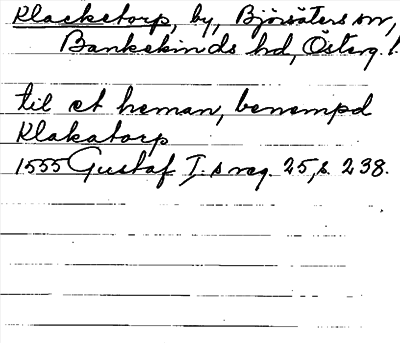 Klacketorp, by, Björsäters sn,
Bankekinds hd, Österg. l.
til et heman, benempd
Klakatorp
1555 Gustaf I.s reg. 25, s. 238.